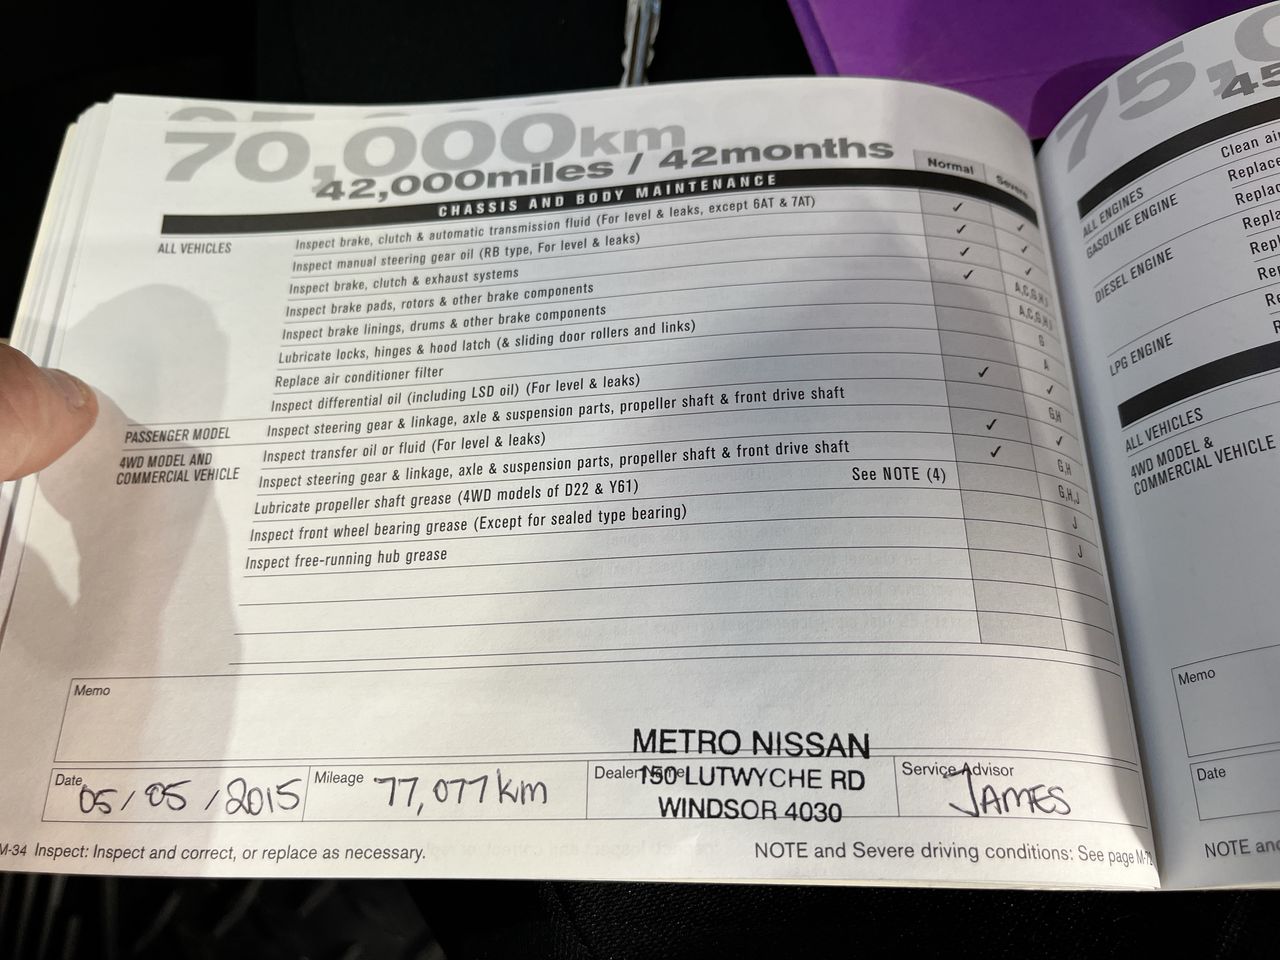 70,000km
42,000miles / 42months
Normal Severe
CHASSIS AND BODY MAINTENANCE
ALL VEHICLES Inspect brake, clutch & automatic transmission fluid (For level & leaks, except 6AT & 7AT) ✓ ✓
Inspect manual steering gear oil (RB type, For level & leaks) ✓ ✓
Inspect brake, clutch & exhaust systems ✓ ✓
Inspect brake pads, rotors & other brake components ✓ A,C,G,H,J
Inspect brake linings, drums & other brake components A,C,G,H,J
Lubricate locks, hinges & hood latch (& sliding door rollers and links) G
Replace air conditioner filter A
Inspect differential oil (including LSD oil) (For level & leaks) ✓ ✓
PASSENGER MODEL Inspect steering gear & linkage, axle & suspension parts, propeller shaft & front drive shaft G,H
4WD MODEL AND
COMMERCIAL VEHICLE
Inspect transfer oil or fluid (For level & leaks) ✓ ✓
Inspect steering gear & linkage, axle & suspension parts, propeller shaft & front drive shaft ✓ G,H
Lubricate propeller shaft grease (4WD models of D22 & Y61) See NOTE (4) G,H,J
Inspect front wheel bearing grease (Except for sealed type bearing) J
Inspect free-running hub grease J
Memo
METRO NISSAN
150 LUTWYCHE RD
WINDSOR 4030
Date 05/05/2015 Mileage 77,077km Service Advisor JAMES
M-34 Inspect: Inspect and correct, or replace as necessary.
NOTE and Severe driving conditions: See page
75,0
45
ALL ENGINES Clean air
GASOLINE ENGINE Replace
DIESEL ENGINE
LPG ENGINE
ALL VEHICLES
4WD MODEL &
COMMERCIAL VEHICLE
Memo
Date
NOTE and